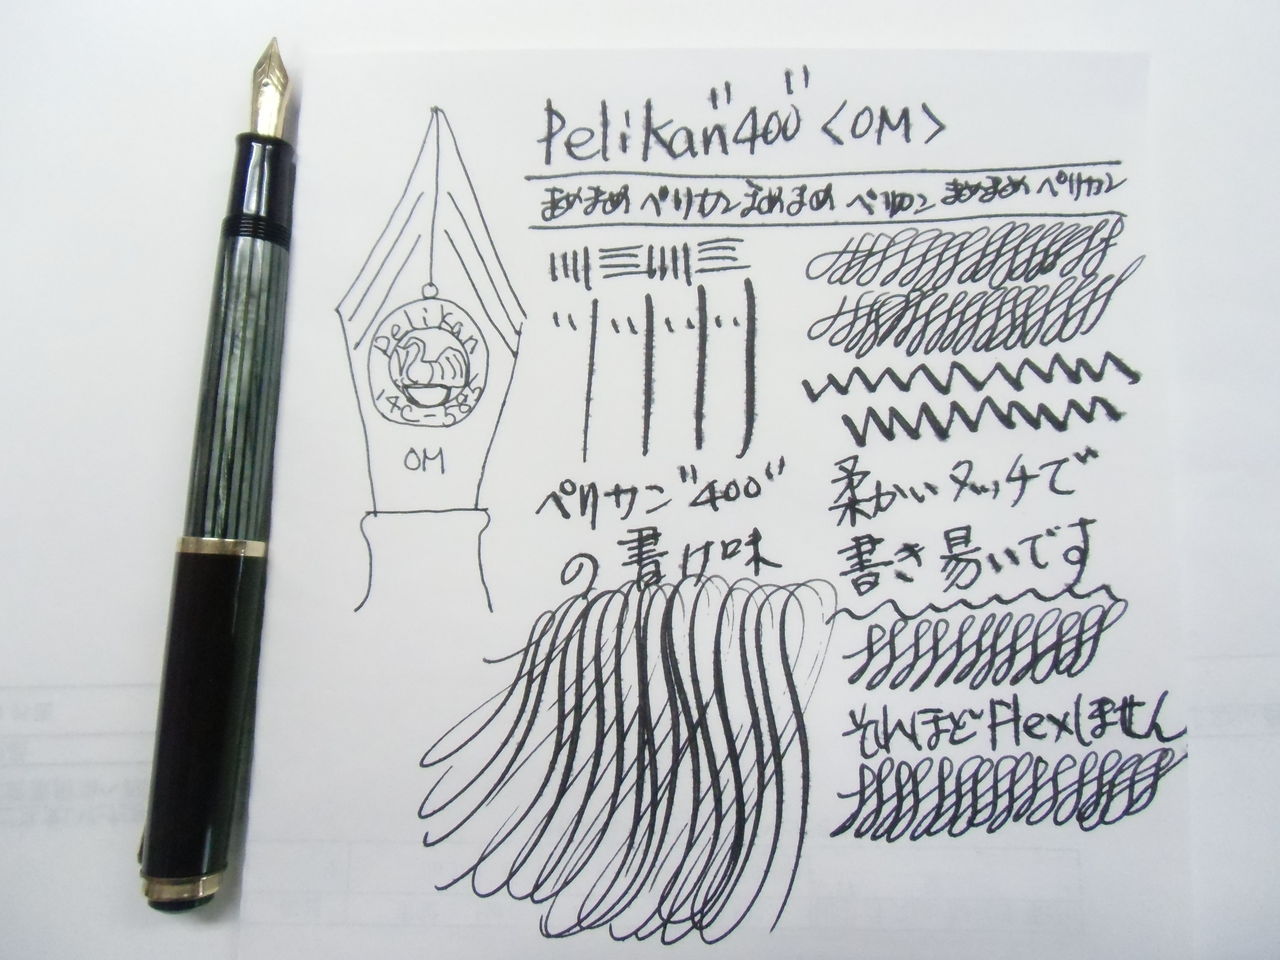 Pelikan "400" <OM>
まめまめ ペリカン まめまめ ペリカン まめまめ ペリカン
pelikan
14C-585
OM
ペリカン "400"
の 書け味
柔かいタッチで
書き易いです
それほどFlexしません